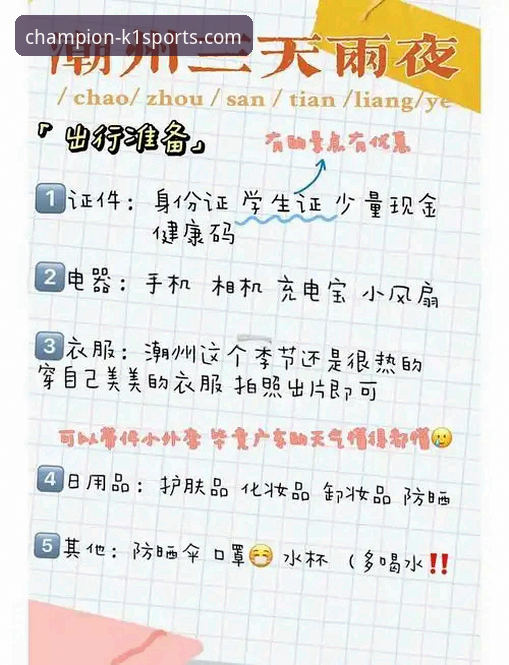 champion-k1sports.com
潮州三天兩夜
/ chao/ zhou / san / tian /liang/ye
「出行准备」
有的景点有优惠
1 证件：身份证 学生证 少量现金
健康码
2 电器：手机 相机 充电宝 小风扇
3 衣服：潮州这个季节还是很热的
穿自己美美的衣服 拍照出片即可
可以带件小外套 毕竟广东的天气懂得都懂🥲
4 日用品：护肤品 化妆品 卸妆品 防晒
5 其他：防晒伞 口罩😷 水杯 （多喝水‼️